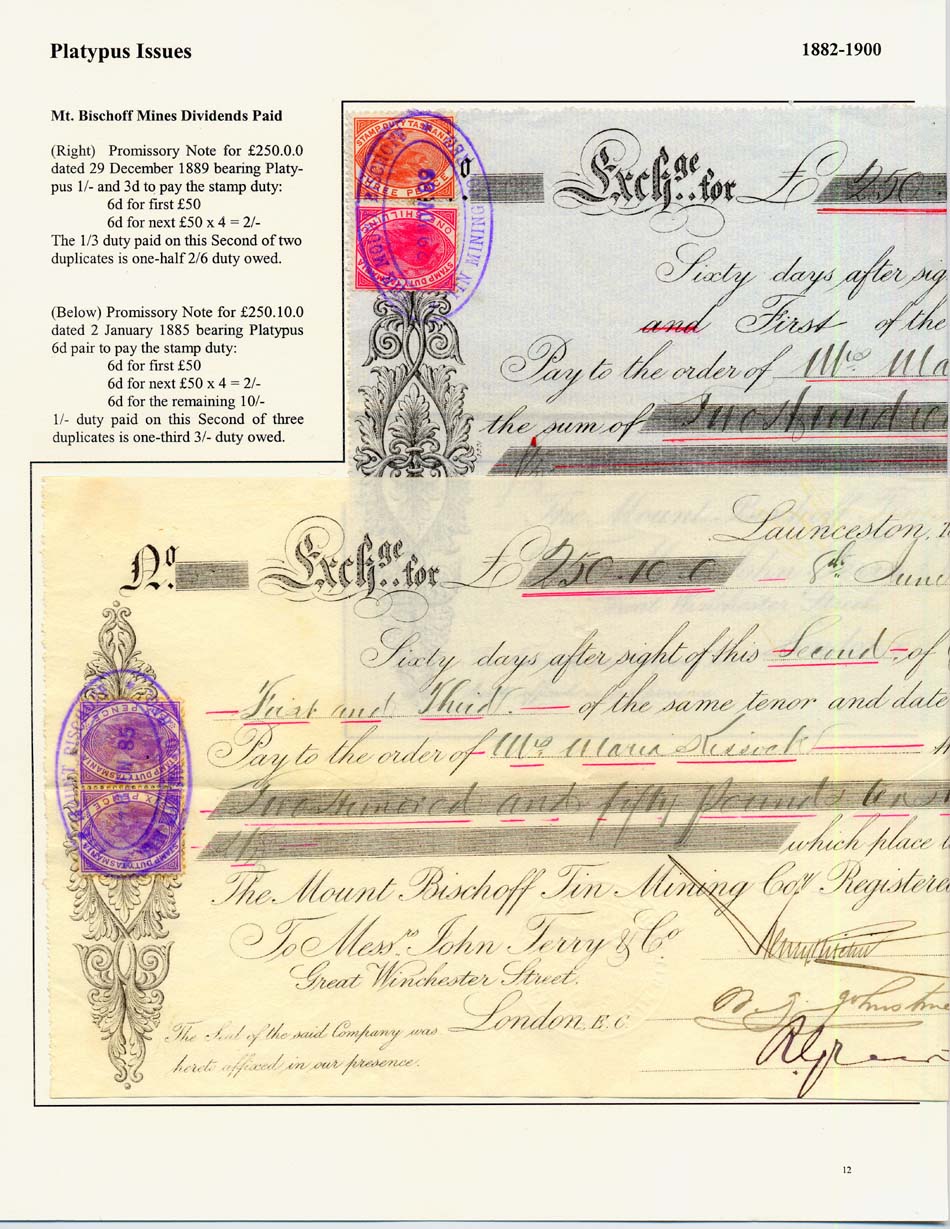 Platypus Issues
1882-1900
Mt. Bischoff Mines Dividends Paid
(Right) Promissory Note for £250.0.0
dated 29 December 1889 bearing Platy-
pus 1/- and 3d to pay the stamp duty:
6d for first £50
6d for next £50 x 4 = 2/-
The 1/3 duty paid on this Second of two
duplicates is one-half 2/6 duty owed.
(Below) Promissory Note for £250.10.0
dated 2 January 1885 bearing Platypus
6d pair to pay the stamp duty:
6d for first £50
6d for next £50 x 4 = 2/-
6d for the remaining 10/-
1/- duty paid on this Second of three
duplicates is one-third 3/- duty owed.
STAMP DUTY TASMANIA
THREE PENCE
STAMP DUTY TASMANIA
TIN MINING
Exchge..for £ 250
Sixty days after sig
and First of the
Pay to the order of Mrs Ma
the sum of Two Hundred
Launceston,
No. Exchge..for £ 250.10.0
8th June
Sixty days after sight of this Second of
First and Third of the same tenor and date
Pay to the order of Mrs Maria Kissock
Two Hundred and fifty pounds ten s
which place
The Mount Bischoff Tin Mining Coy Registere
To Messrs John Terry & Co
Great Winchester Street.
London, E.C.
The Seal of the said Company was
hereto affixed in our presence.
STAMP DUTY TASMANIA
SIX PENCE
STAMP DUTY TASMANIA
12